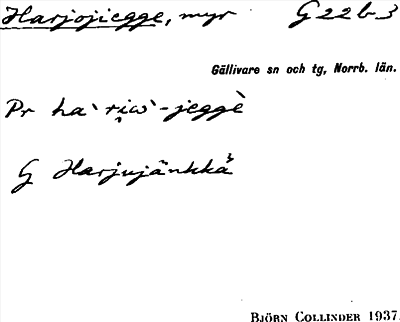 Harjojiegge, myr G22b3
Gällivare sn och tg, Norrb. län.
Pr haˋriẉˋ-jeggè
G Harjujänkkä³
BJÖRN COLLINDER 1937